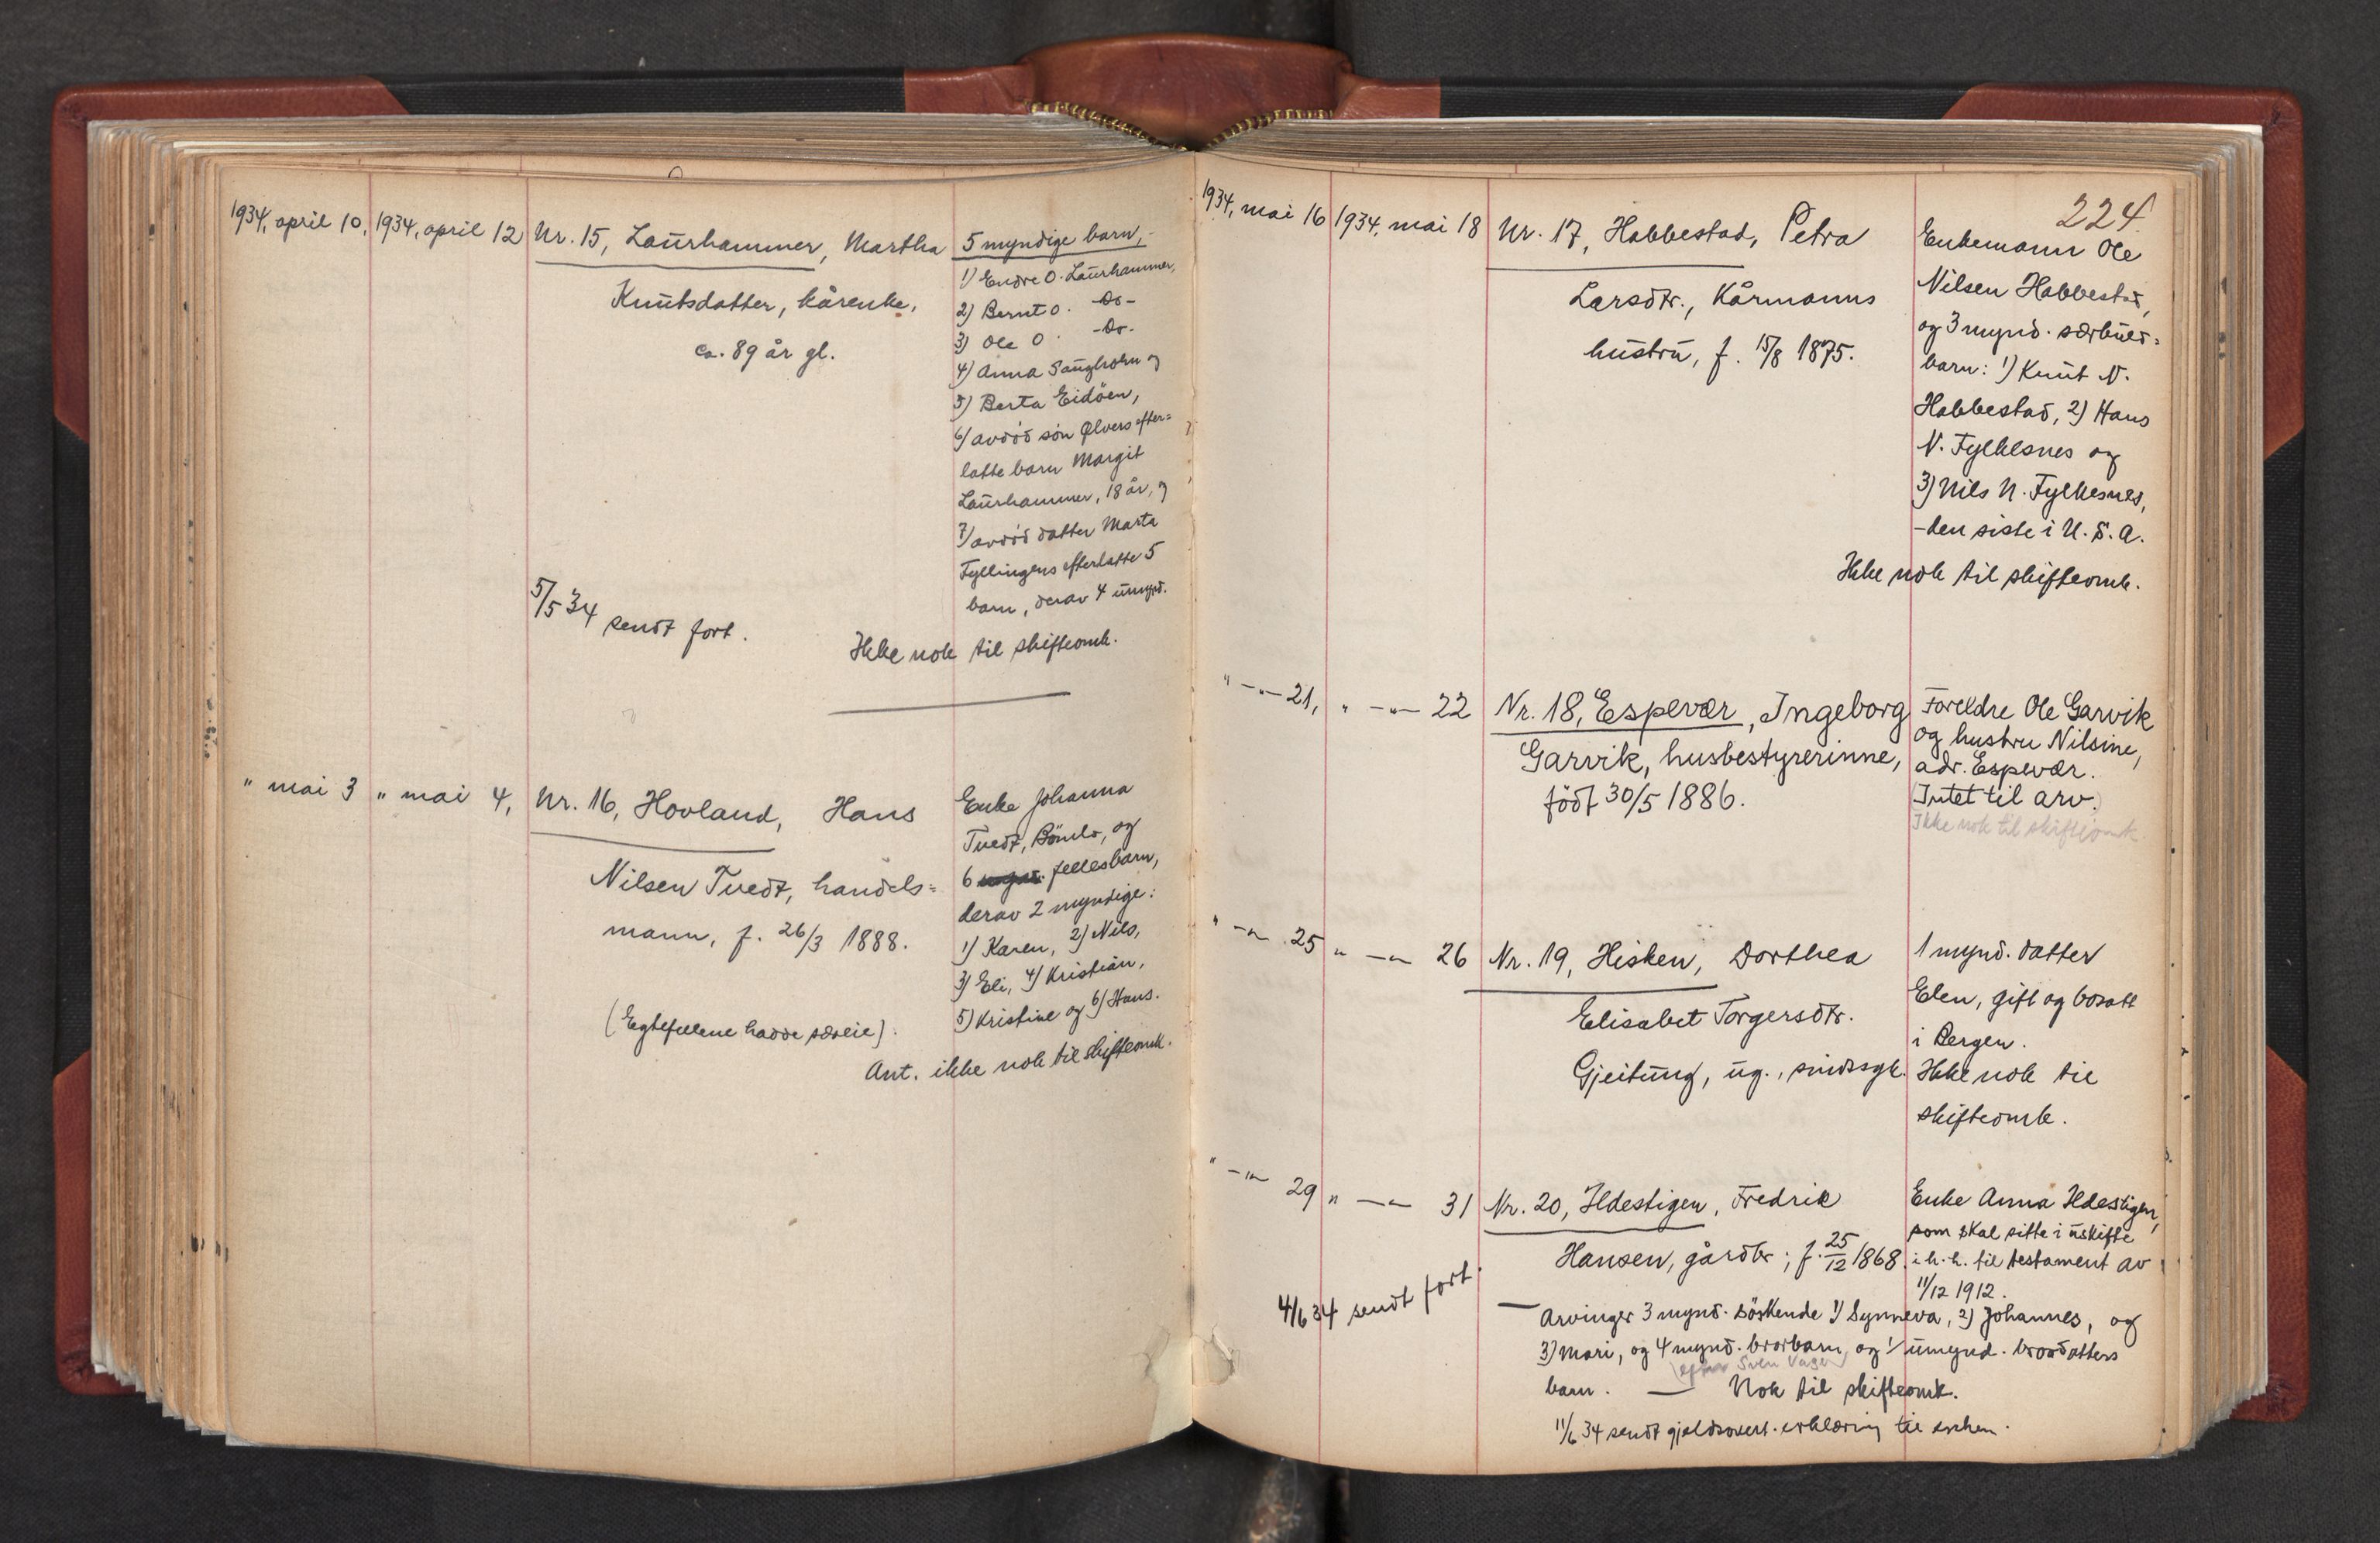 1934, april 10, 1934, april 12 Nr. 15, Laurhammer, Martha
Knutsdatter, kårenke,
ca. 89 år gl.
5 myndige barn,
1) Endre O. Laurhammer,
2) Bernt O. -do-
3) Ole O. -do-
4) Anna Saugholm og
5) Berta Eidöen,
6) avdöd sön Ølvers efter=
latte barn Margit
Laurhammer, 18 år, og
7) avdöd datter Marta
Fyllingens efterlatte 5
barn, derav 4 umynd.
5/5 34 sendt fort.
Ikke nok til skifteomk.
" mai 3 " mai 4, Nr. 16, Hovland, Hans
Nilsen Tvedt, handels=
mann, f. 26/3 1888.
(Egtefellene hadde særeie).
Enke Johanna
Tvedt, Bömlo, og
6 fellesbarn,
derav 2 myndige:
1) Karen, 2) Nils,
3) Eli, 4) Kristian,
5) Kristine og 6) Hans.
Ant. ikke nok til skifteomk.
224.
1934, mai 16 1934, mai 18 Nr. 17, Habbestad, Petra
Larsdtr., Kårmanns
hustru, f. 15/8 1875.
Enkemann Ole
Nilsen Habbestad,
og 3 mynd. særkuld=
barn: 1) Knut N.
Habbestad, 2) Hans
N. Fylkesnes og
3) Nils N. Fylkesnes,
- den siste i U.S.A.
Ikke nok til skifteomk.
" -"- 21, " -"- 22 Nr. 18, Espevær, Ingeborg
Garvik, husbestyrerinne,
födt 30/5 1886.
Foreldre Ole Garvik
og hustru Nilsine,
adr. Espevær.
(Intet til arv.)
Ikke nok til skifteomk.
" -"- 25 " -"- 26 Nr. 19, Hisken, Dorthea
Elisabet Torgersdtr.
Gjeitung, ug., sindssyk.
1 mynd. datter
Elen, gift og bosatt
i Bergen.
Ikke nok til
skifteomk.
" -"- 29 " -"- 31 Nr. 20, Ildestigen, Fredrik
Hansen, gårdbr., f. 25/12 1868.
4/6 34 sendt fort.
Enke Anna Ildestigen,
som skal sitte i uskifte
i h.h. til testament av
11/12 1912.
— Arvinger 3 mynd. söskende 1) Synneva, 2) Johannes, og
3) Mari, og 4 mynd. brorbarn og 1 umynd. brordatters
(efter Sven Vage)
barn. — Nok til skifteomk.
11/6 34 sendt gjeldsovert. erklæring til enken.